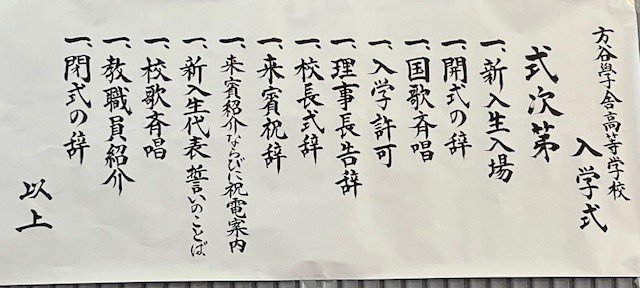 方谷學舎高等学校
入学式
式次第
一、新入生入場
一、開式の辞
一、国歌斉唱
一、入学許可
一、理事長告辞
一、校長式辞
一、来賓祝辞
一、来賓紹介ならびに祝電案内
一、新入生代表誓いのことば
一、校歌斉唱
一、教職員紹介
一、閉式の辞
以上